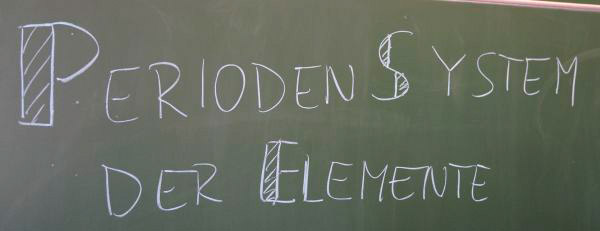 PERIODENSYSTEM
DER ELEMENTE